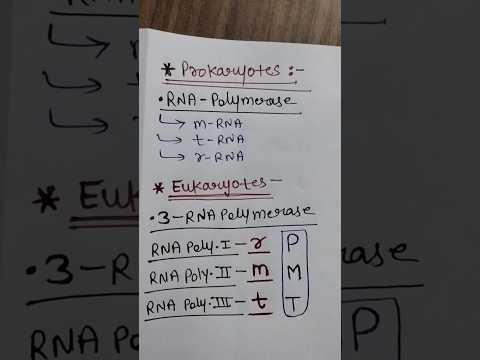 * Prokaryotes :-
• RNA-Polymerase
↳ m-RNA
↳ t-RNA
↳ r-RNA
* Eukaryotes -
• 3-RNA Polymerase
RNA Poly. I - r P
RNA Poly. II - m M
RNA Poly. III - t T